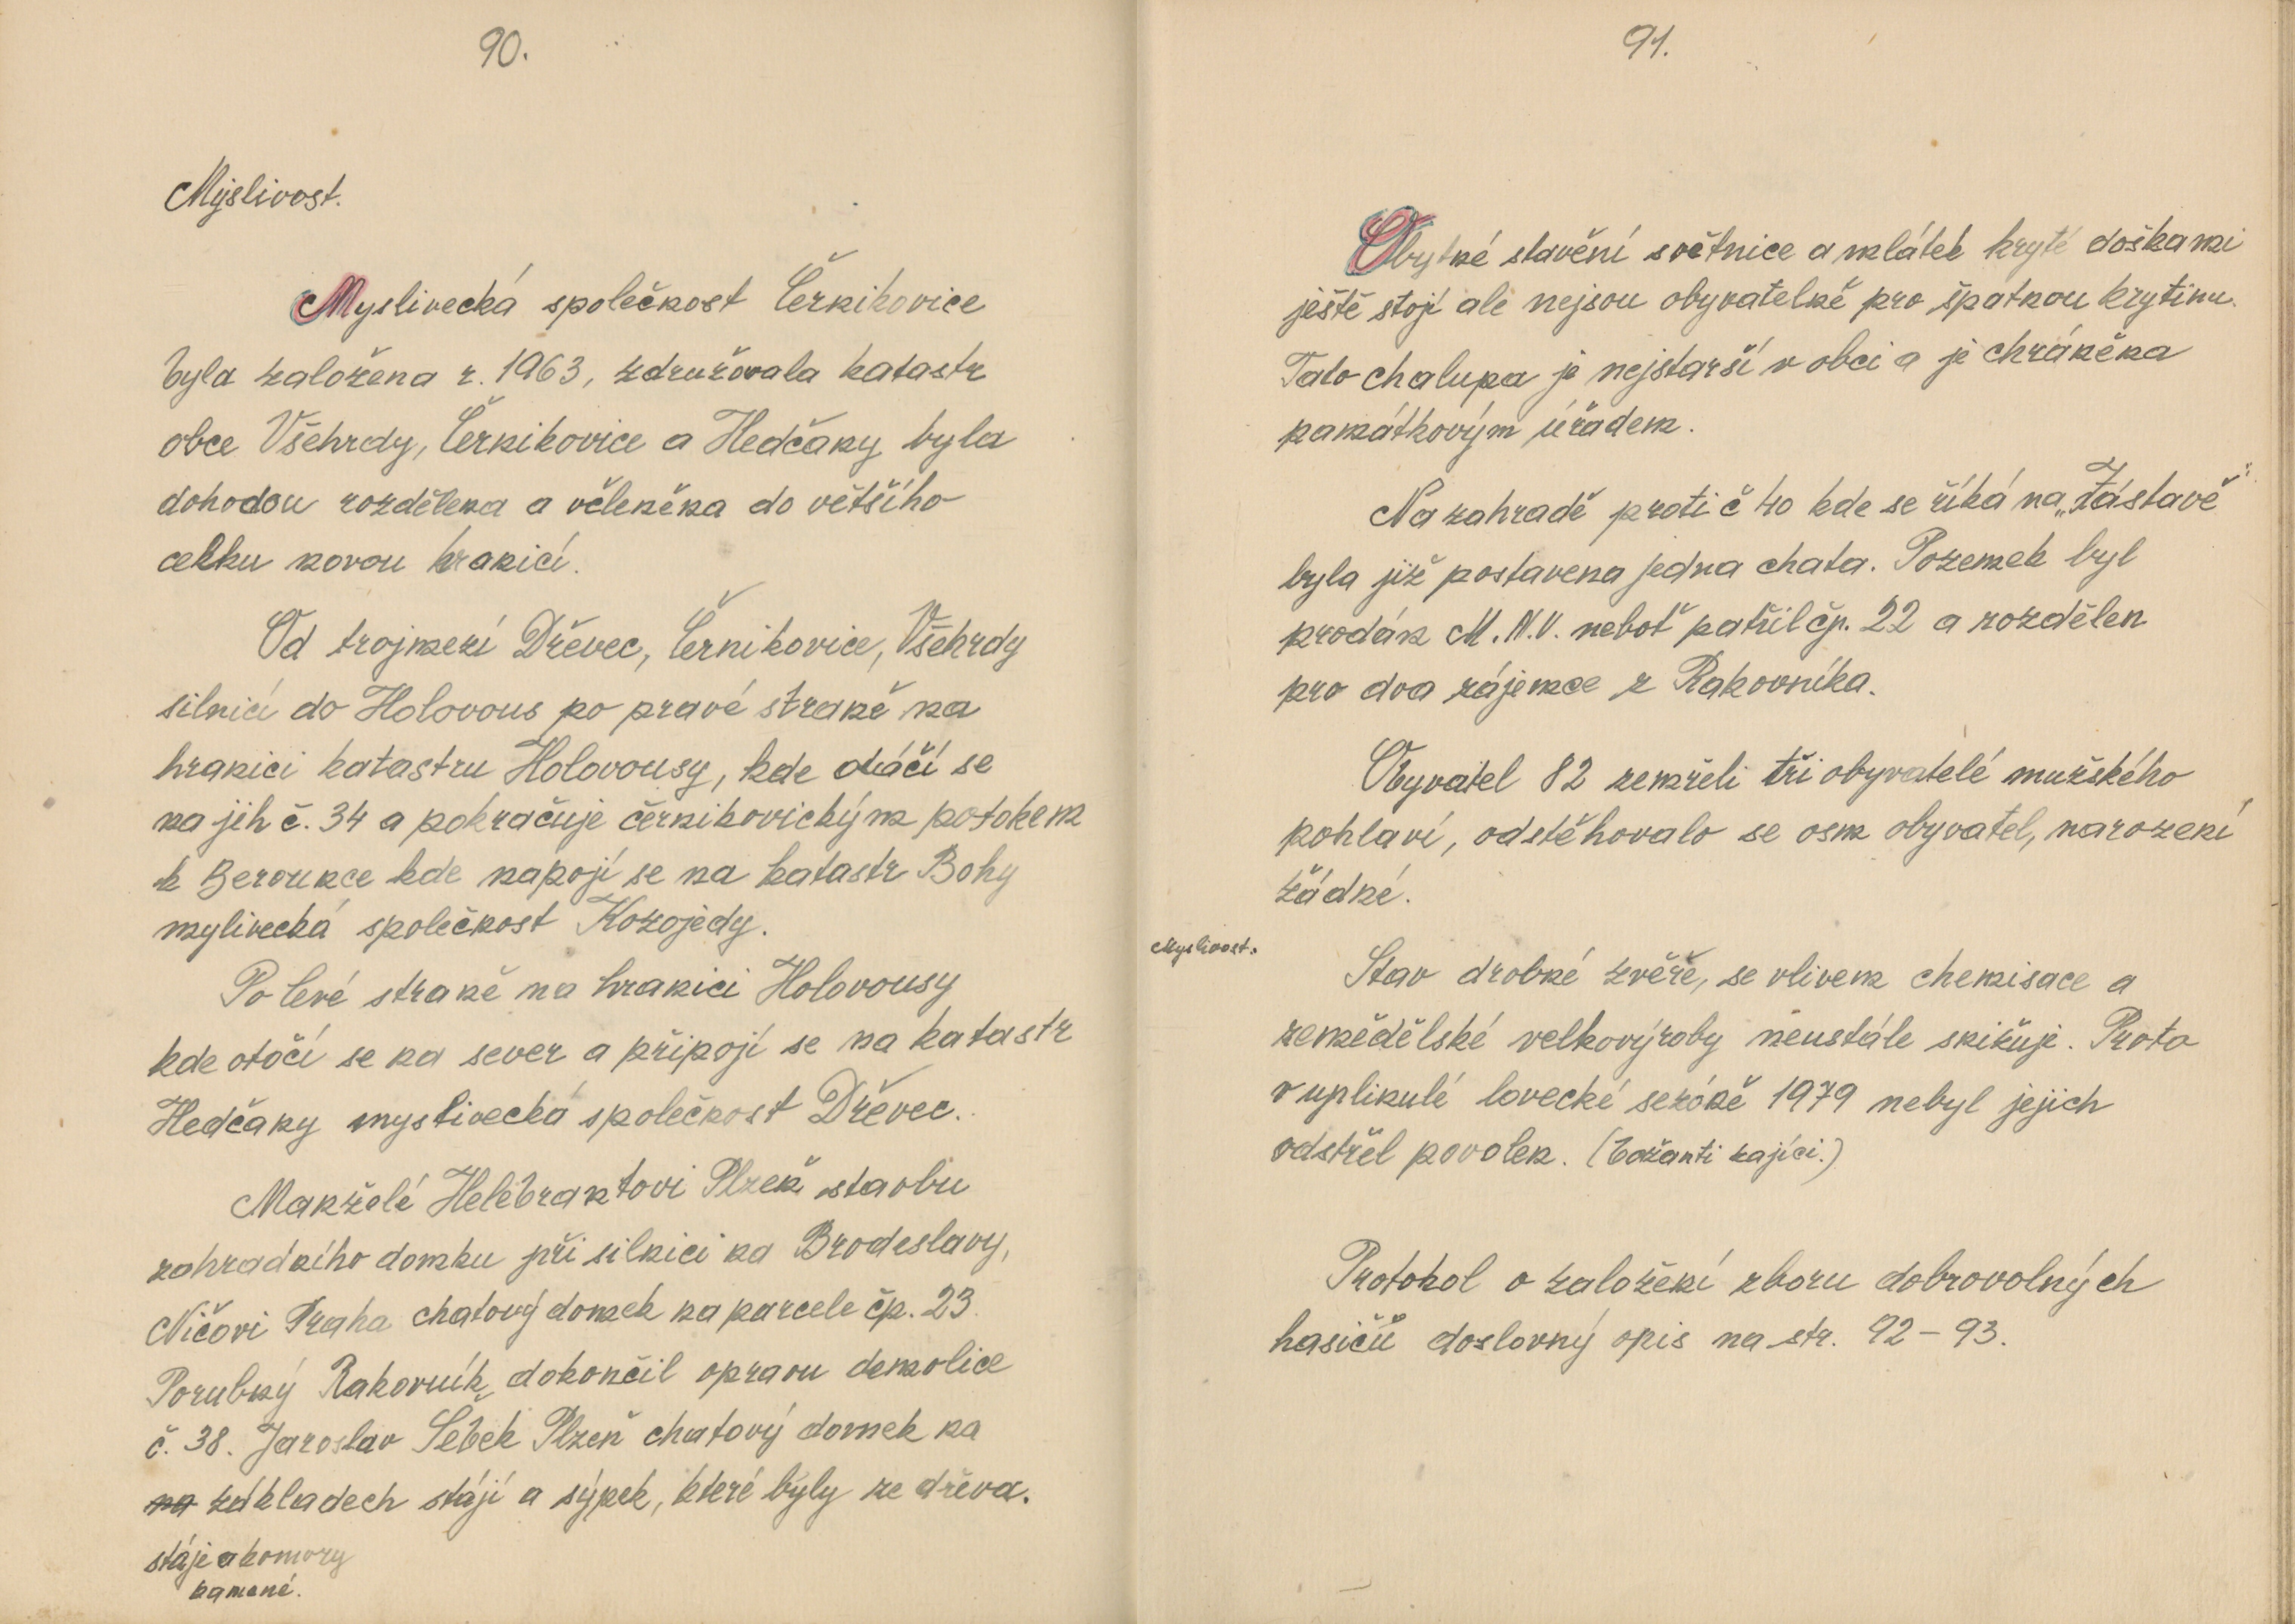 90.
Mýslivost.
Myslivecká společnost Černikovice
byla založena r. 1963, združovala katastr
obce Všehrdy, Černikovice a Hedčany byla
dohodou rozdělena a včleněna do většího
celku novou hranicí.
Od trojmezí Dřevec, Černikovice, Všehrdy
silnicí do Holovous po pravé straně na
hranici katastru Holovousy, kde otáčí se
na jih č. 34 a pokračuje černikovickým potokem
k Berounce kde napojí se na katastr Bohy
mylivecká společnost Kozojedy.
Po levé straně na hranici Holovousy
kde otočí se na sever a připojí se na katastr
Hedčany myslivecká společnost Dřevec.
Manželé Helebrantovi Plzeň stavbu
zahradního domku při silnici na Brodeslavy,
Ničovi Praha chatový domek na parcele čp. 23.
Porubný Rakovník dokončil opravu demolice
č. 38. Jaroslav Šebek Plzeň chatový domek na
na základech stájí a sýpek, které byly ze dřeva.
stáje a komory
kamené.
91.
Obytné stavění světnice a mlátek kryté doškami
ještě stojí ale nejsou obyvatelné pro špatnou krytinu.
Tato chalupa je nejstarší v obci a je chráněna
památkovým úřadem.
Na zahradě proti č 40 kde se říká na „Zástavě"
byla již postavena jedna chata. Pozemek byl
prodán M.N.V. neboť patřil čp. 22 a rozdělen
pro dva zájemce z Rakovníka.
Obyvatel 82 zemřeli tři obyvatelé mužského
pohlaví, odstěhovalo se osm obyvatel, narození
žádné.
Myslivost.
Stav drobné zvěře, se vlivem chemisace a
zemědělské velkovýroby neustále snižuje. Proto
v uplinulé lovecké sezóně 1979 nebyl jejich
odstřel povolen. (bažanti zajíci.)
Protokol o založení zboru dobrovolných
hasičů doslovný opis na str. 92 – 93.